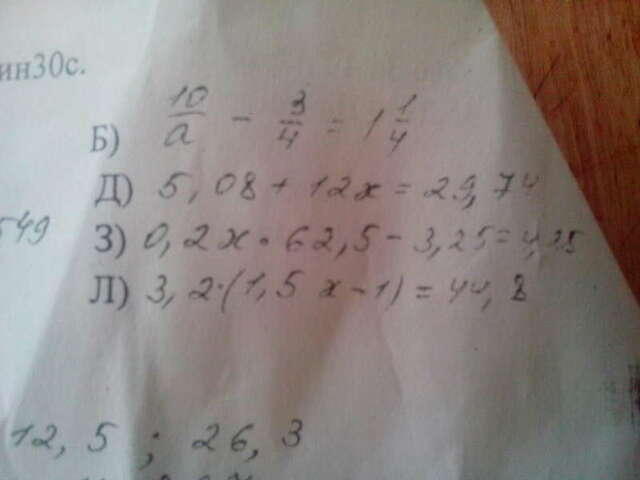 ин30с.
Б) 10/a - 3/4 = 1 1/4
Д) 5,08 + 12x = 29,74
З) 0,2x • 62,5 - 3,25 = 4,25
Л) 3,2·(1,5x - 1) = 44,8
549
12,5 ; 26,3